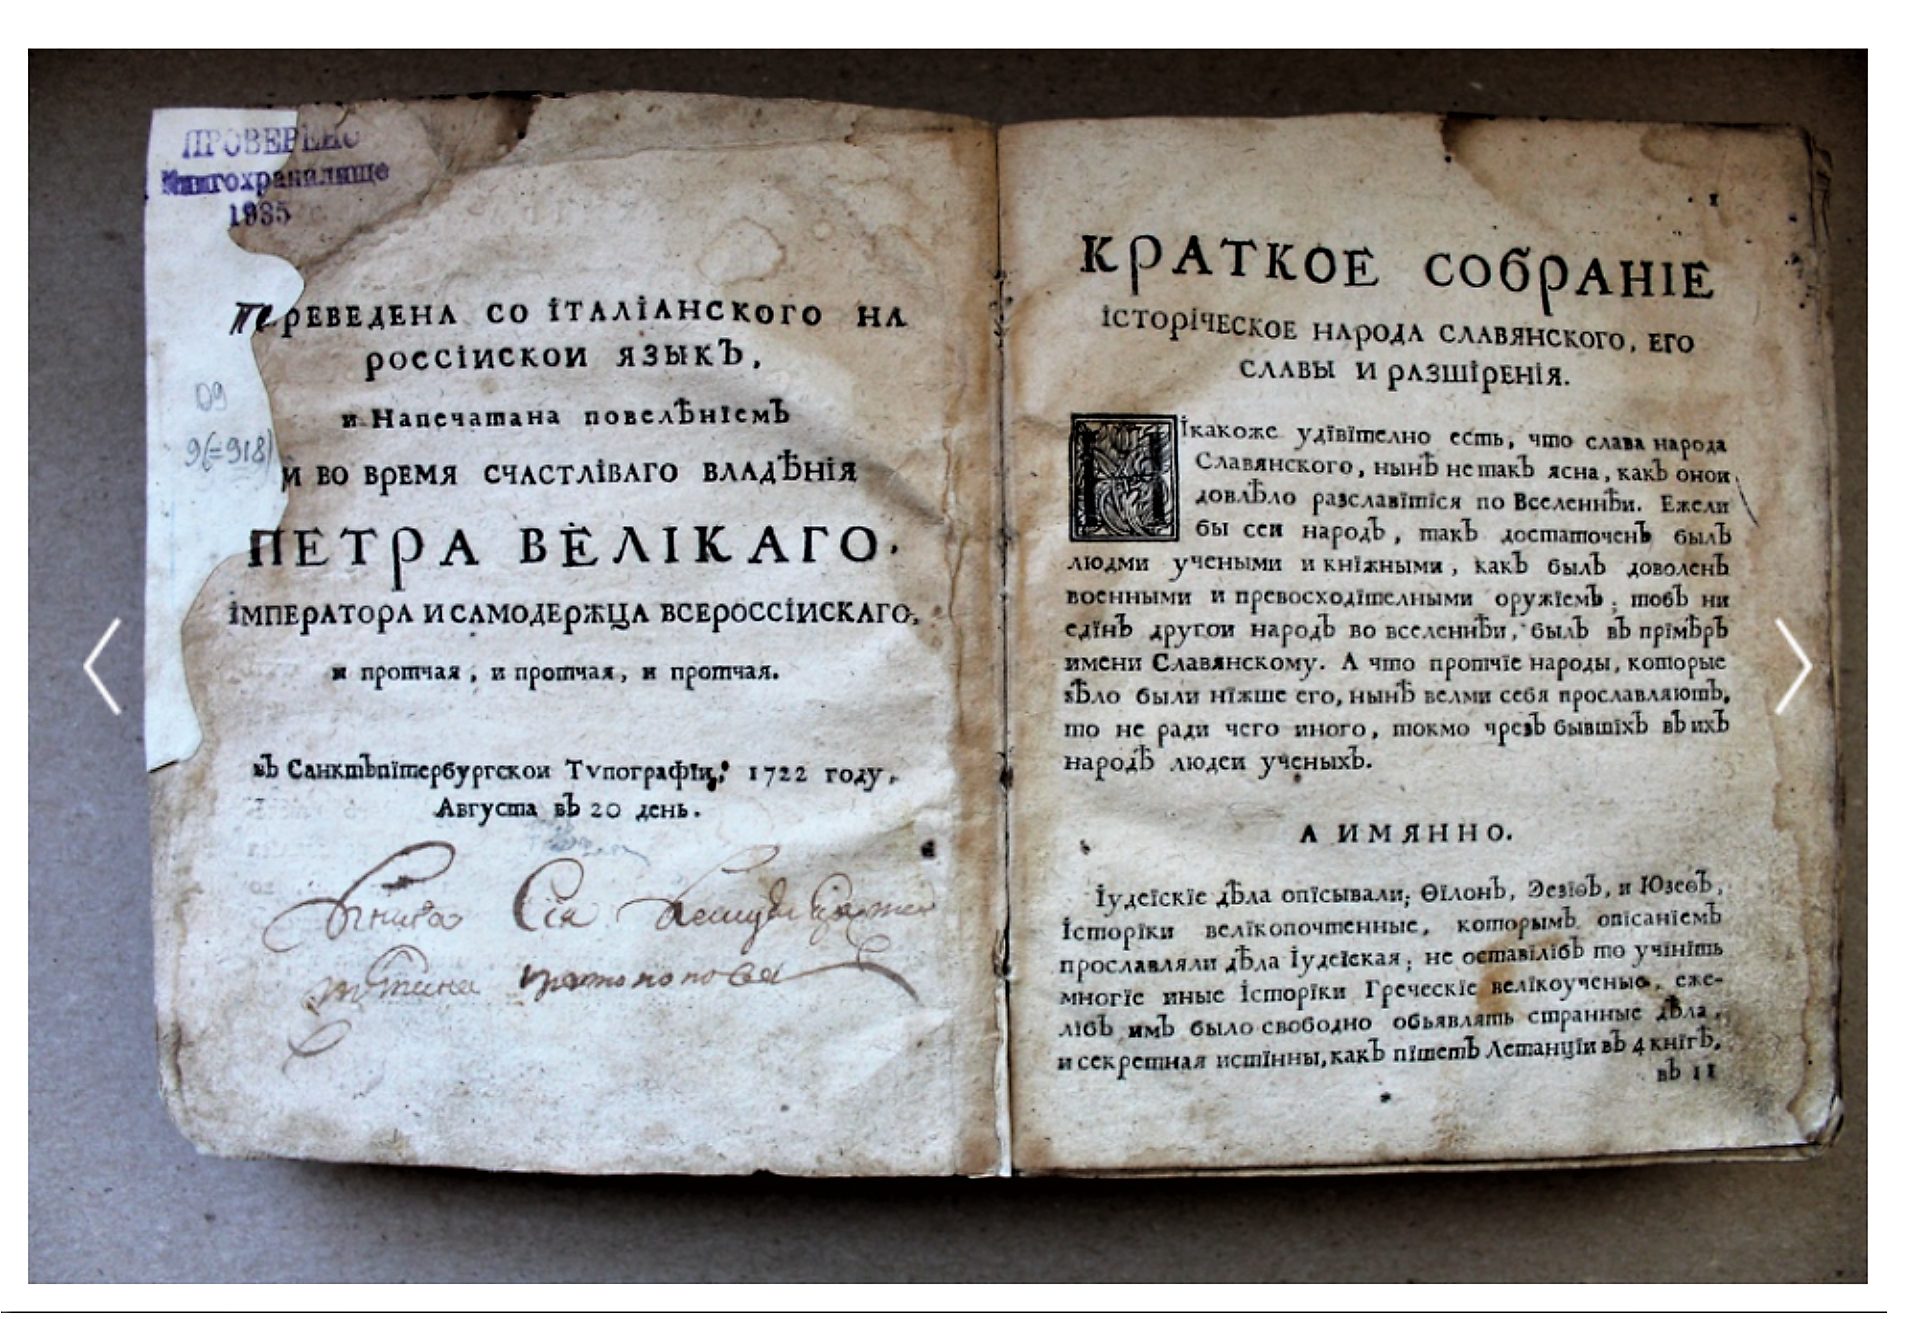 ПРОВЕРЕНО
Книгохранилище
1935 г.
Переведена со італіанского на
россіискои языкъ,
и Напечатана повелѣніемъ
И во время счастліваго владѣнія
ПЕТРА ВЕЛІКАГО,
імператора и самодержца всероссіискаго,
и протчая, и протчая, и протчая.
въ Санктъпітербургскои Тѵпографїи, 1722 году,
Августа въ 20 день.
09
9(=918)
Книга Сія
протопопова
1
КРАТКОЕ СОБРАНІЕ
історіческое народа славянского, его
славы и разшіренія.
Нікакоже удївїтелно есть, что слава народа
Славянского, нынѣ не такъ ясна, какъ онои
довлѣло разславїтїся по Вселеннѣи. Ежели
бы сеи народъ, такъ достаточенъ былъ
людми учеными и кнїжными, какъ былъ доволенъ
военными и превосходїтелными оружїемъ; тобъ ни
едїнъ другои народъ во вселеннѣи, былъ въ прїмѣръ
имени Славянскому. А что протчїе народы, которые
ѕѣло были нїжше его, нынѣ велми себя прославляютъ,
то не ради чего иного, токмо чрезъ бывшїхъ въ ихъ
народѣ людеи ученыхъ.
А ИМЯННО.
Іудеїскїе дѣла опїсывали; Ѳїлонъ, Эгезїѳъ, и Юзеѳъ,
історїки велїкопочтенные, которымъ опїсанїемъ
прославляли дѣла іудеїская; не оставїлїбъ то учїнїть
многїе иные історїки Греческїе велїкоученые, еже-
лїбъ имъ было свободно объявлять странные дѣла,
и секретная истїнны, какъ пїшетъ Летанцїи въ 4 кнїгѣ,
въ 11